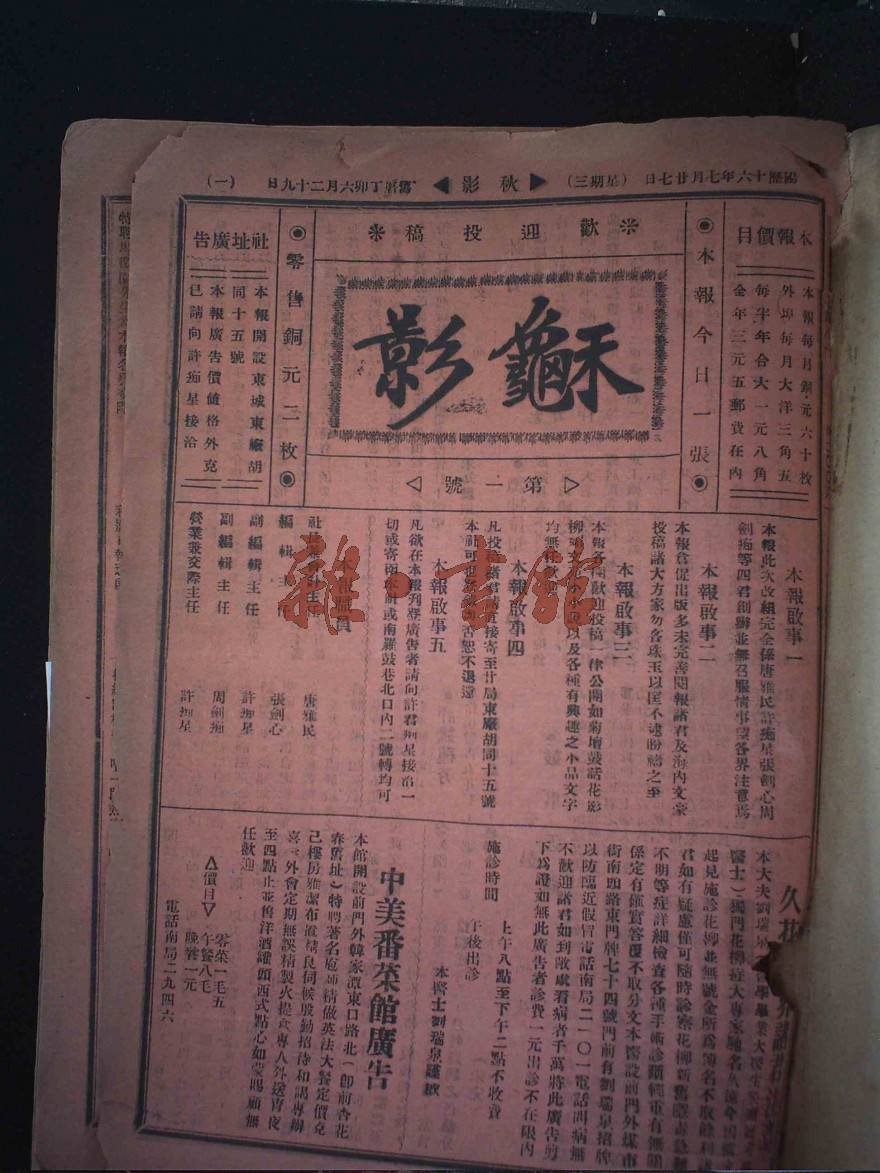 陽歷十六年七月廿七日（星期三）
▶秋影◀
舊曆丁卯六月二十九日
（一）
本報價目
本報每月銅元六十枚
外埠每月大洋三角五
每半年合大一元八角
全年三元五郵費在內
◉本報今日一張◉
※歡迎投稿※
龝影
▷第一號◁
◉零售銅元二枚◉
社址廣告
本報開設東城東廠胡
同十五號
本報廣告價值格外克
已請向許痴星接洽
本報啟事一
本報此次改組完全係唐雅民許痴星張劍心周
劍痴等四君創辦並無召服情事望各界注意焉
本報啟事二
本報倉促出版多未完善閱報諸君及海內文豪
投稿諸大方家勿吝珠玉以匡不逮盼禱之至
本報啟事三
本報各欄歡迎投稿一律公開如菊壇鼓話花影
以及各種有興趣之小品文字
均無任歡迎
本報啟事四
凡投稿諸君請直接寄至廿局東廠胡同十五號
本社可也登載與否恕不退還
本報啟事五
凡欲在本報刊登廣告者請向許君痴星接洽一
切或寄南羅鼓巷北口內二號轉均可
本報職員
唐雅民
編輯主任 張劍心
副編輯主任 許痴星
副編輯主任 周劍痴
營業兼交際主任 許痴星
本大夫劉瑞泉
醫士）獨門花柳症大專家馳名
起見施診花柳並無號金所爲傳名不取餘利
君如有疑慮僅可隨時診察花柳新舊
不明等症詳細檢查各種手術診斷輕重有無關
係定有確實答覆不取分文本醫設前門外煤市
街南頭路東門牌七十四號門前有劉瑞泉招牌
以防臨近假冒電話南局二一〇一電話叫病無
不歡迎諸君如到敝處看病者千萬將此廣告剪
下爲證如無此廣告者診費一元出診不在限內
施診時間
上午八點至下午二點不收費
午後出診
本醫士劉瑞泉謹啟
中美番菜館廣告
本館開設前門外韓家潭東口路北（卽前杏花
春舊址）特聘著名庖師精做英法大餐定價克
己樓房雅潔布置精良伺候殷勤招待和藹專辦
喜壽外會定期無誤精製火提 專人外送宵夜
至四點止並售洋酒罐頭西式點心如蒙賜顧無
任歡迎
△價目▽
零菜一毛五
午餐八毛
晚餐一元
電話南局二九四六
雜·書館